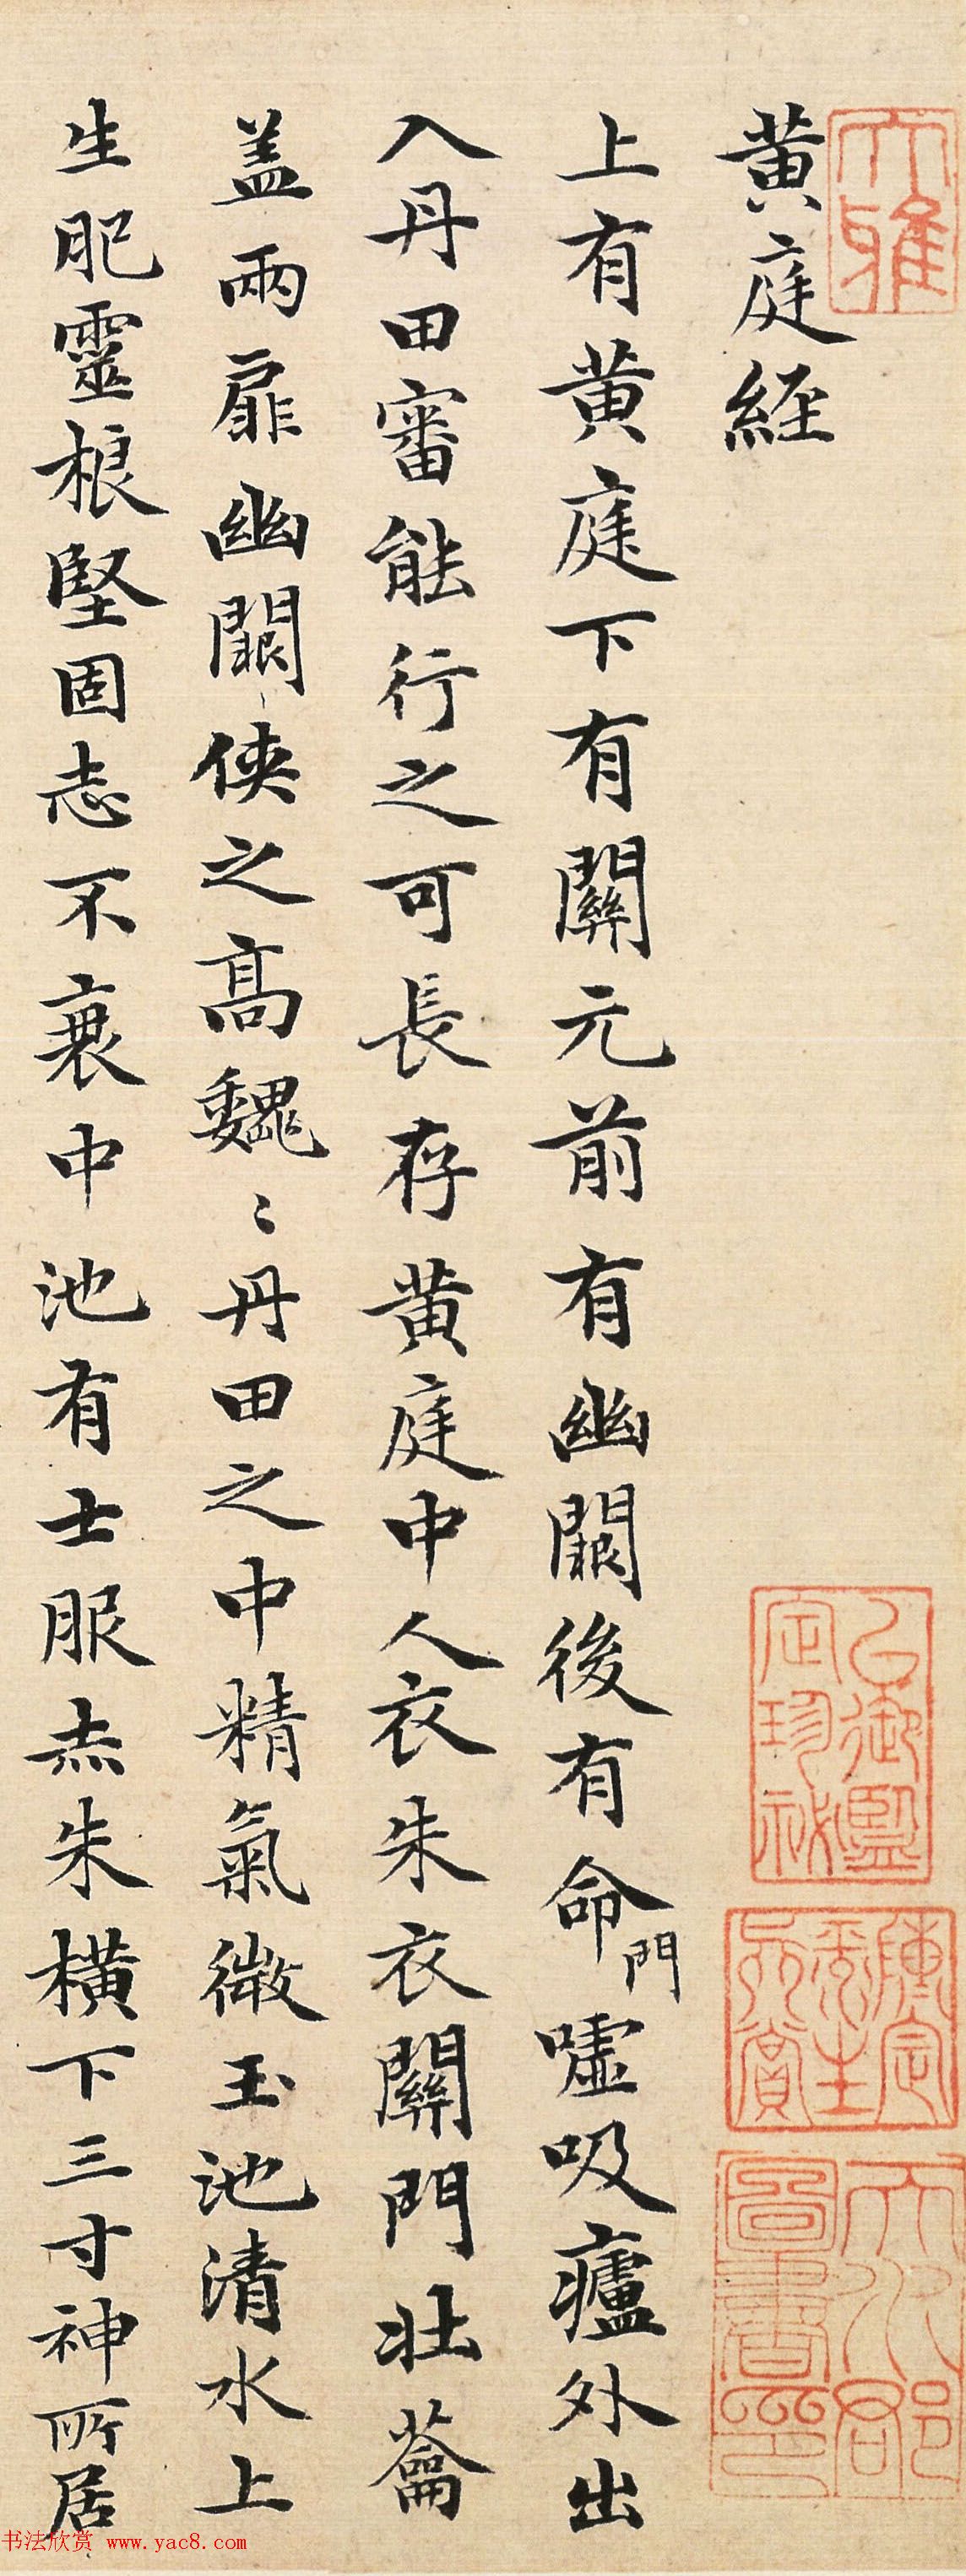 黄庭經
上有黄庭下有關元前有幽闕後有命門噓吸廬外出
入丹田審能行之可長存黄庭中人衣朱衣關門壯蘥
盖兩扉幽闕侠之高魏〻丹田之中精氣微玉池清水上
生肥靈根堅固志不衰中池有士服赤朱橫下三寸神所居
大雅
乙御鑒定珍祕
圖書印
书法欣赏 www.yac8.com